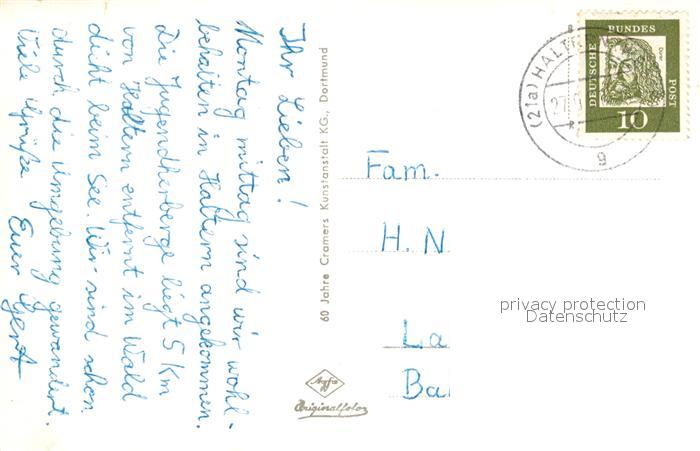 Ihr Lieben!
Montag mittag sind wir wohl-
behalten in Haltern angekommen.
Die Jugendherberge liegt 5 km
von Haltern entfernt im Wald
dicht beim See. Wir sind schon
durch die Umgebung gewandert.
Viele Grüße Euer Gert
60 Jahre Cramers Kunstanstalt KG., Dortmund
Agfa
Originalfoto
DEUTSCHE BUNDES POST
Dürer
10
(21a) HALTE
27
g
Fam.
H. N
La
Ba
privacy protection
Datenschutz